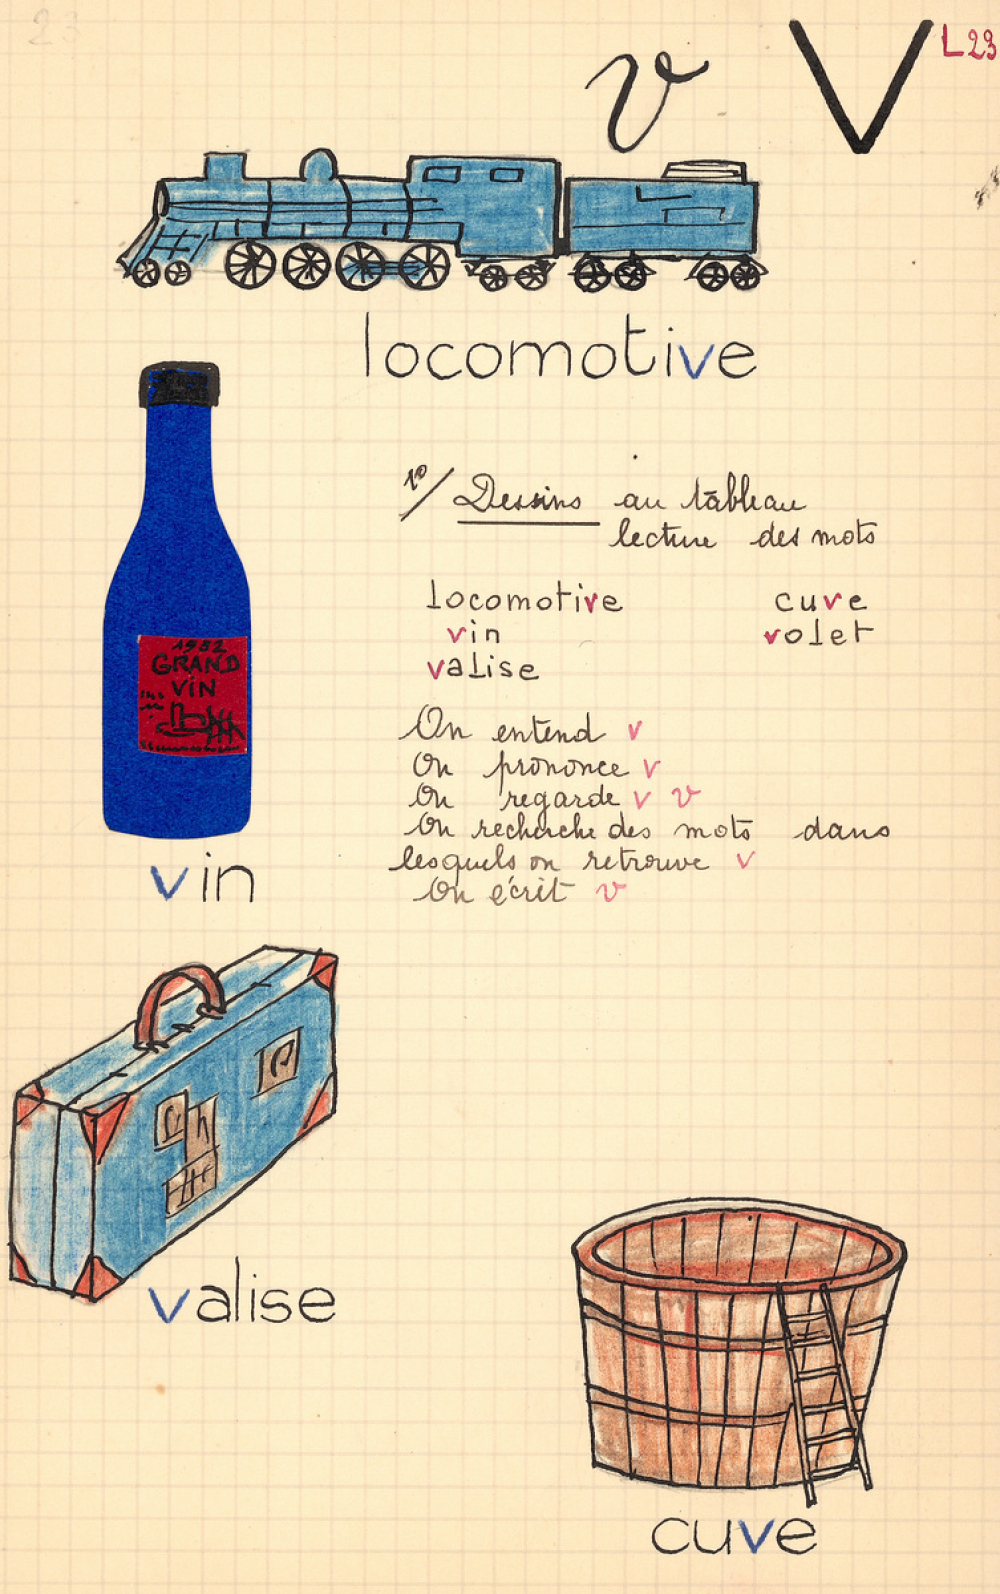 23
v V L23
locomotive
1º/ Dessins au tableau
lecture des mots
locomotive cuve
vin volet
valise
1952
GRAND
VIN
On entend v
On prononce v
On regarde v v
On recherche des mots dans
lesquels on retrouve v
On écrit v
vin
valise
cuve